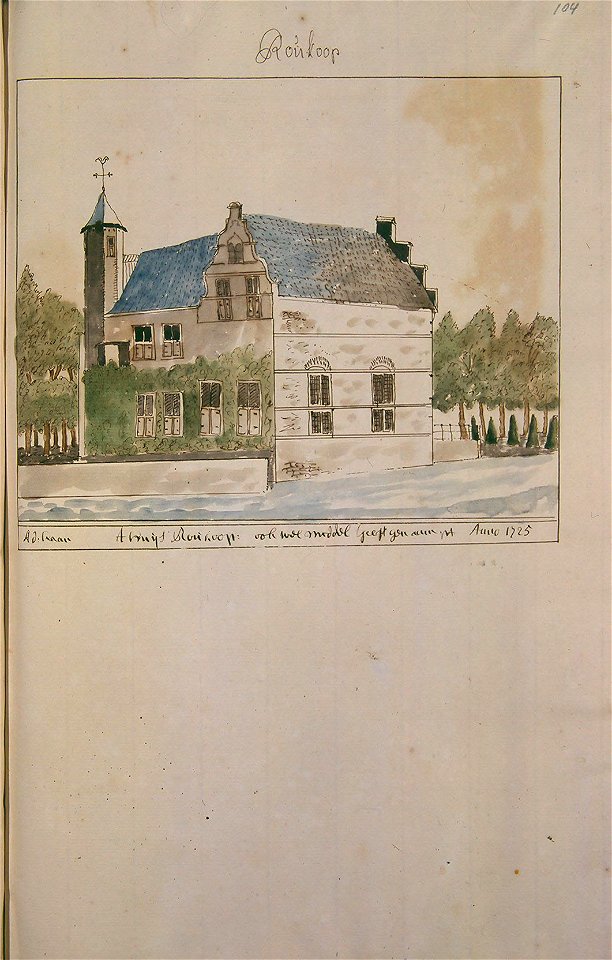 104
Roúkoop
A D. haan t huijs Roúkoop: ook wel middel Geest genaempt Anno 1725